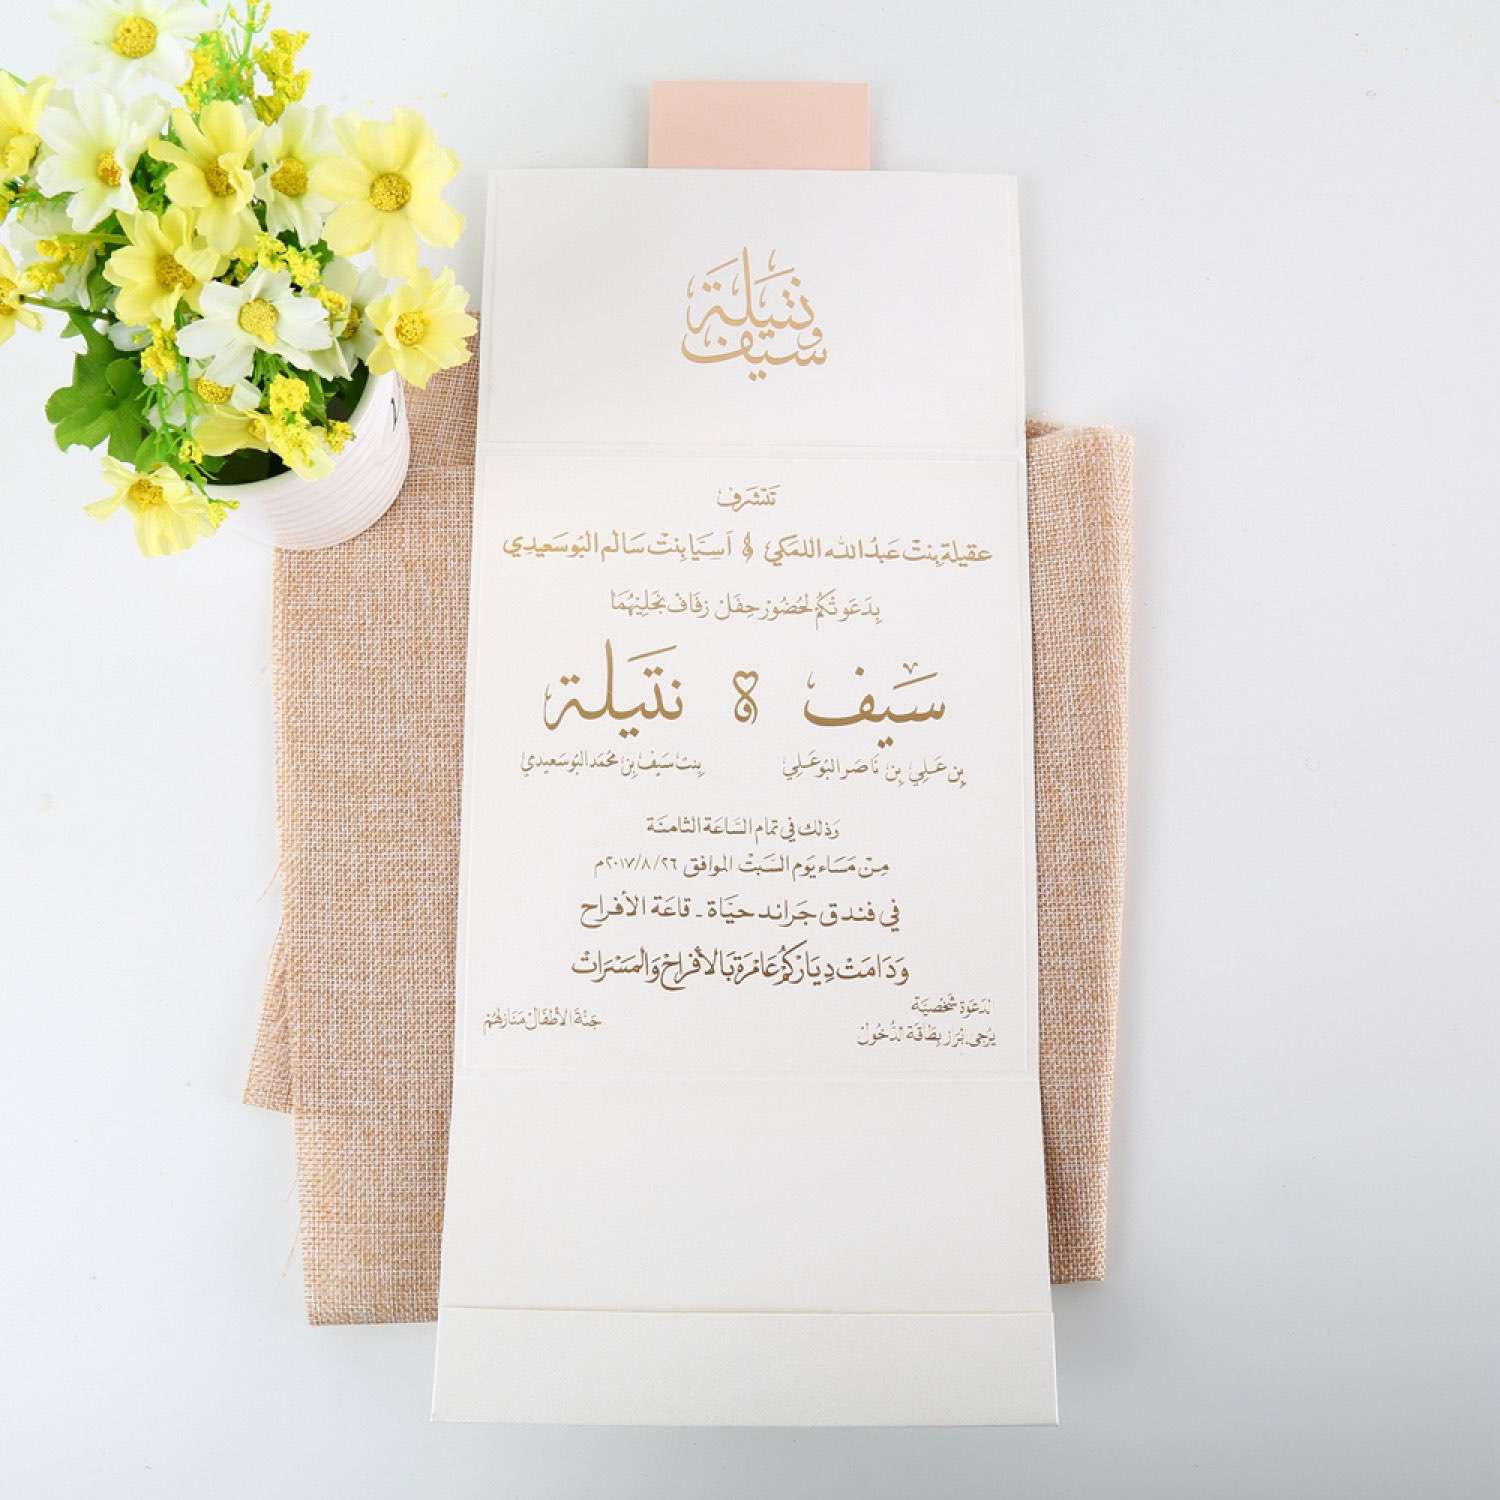 نتيلة
و
سيف
تتشرف
عقيلة بنت عبدالله اللمكي و آسيا بنت سالم البوسعيدي
بدعوتكم لحضور حفل زفاف نجليهما
سيف و نتيلة
بن علي بن ناصر البوعلي
بنت سيف بن محمد البوسعيدي
وذلك في تمام الساعة الثامنة
من مساء يوم السبت الموافق ٢٠١٧/٨/٢٦م
في فندق جراند حياة - قاعة الأفراح
ودامت دياركم عامرة بالأفراح والمسرات
الدعوة شخصية
يُرجى إبراز بطاقة الدخول
جنة الأطفال منازلهم